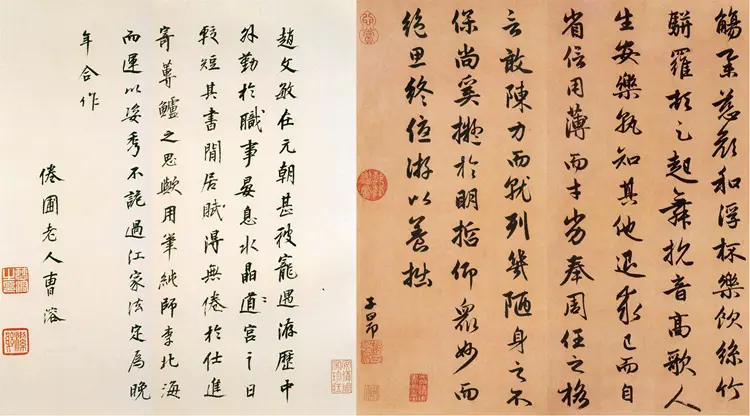 觴舉慈顏和浮杯樂飲絲竹
駢羅頓足起舞抗音高歌人
生安樂孰知其他退求己而自
省信用薄而才劣奉周任之格
言敢陳力而就列幾陋身之不
保尚奚擬於明哲仰衆妙而
絕思終優游以養拙
子昂
趙文敏在元朝甚被寵遇游歷中
外勤於職事晏息水晶道宮之日
較短其書閒居賦得無倦於仕進
寄蓴鱸之思歟用筆純師李北海
而運以姿秀不詭過江家法定為晚
年合作
倦圃老人曹溶